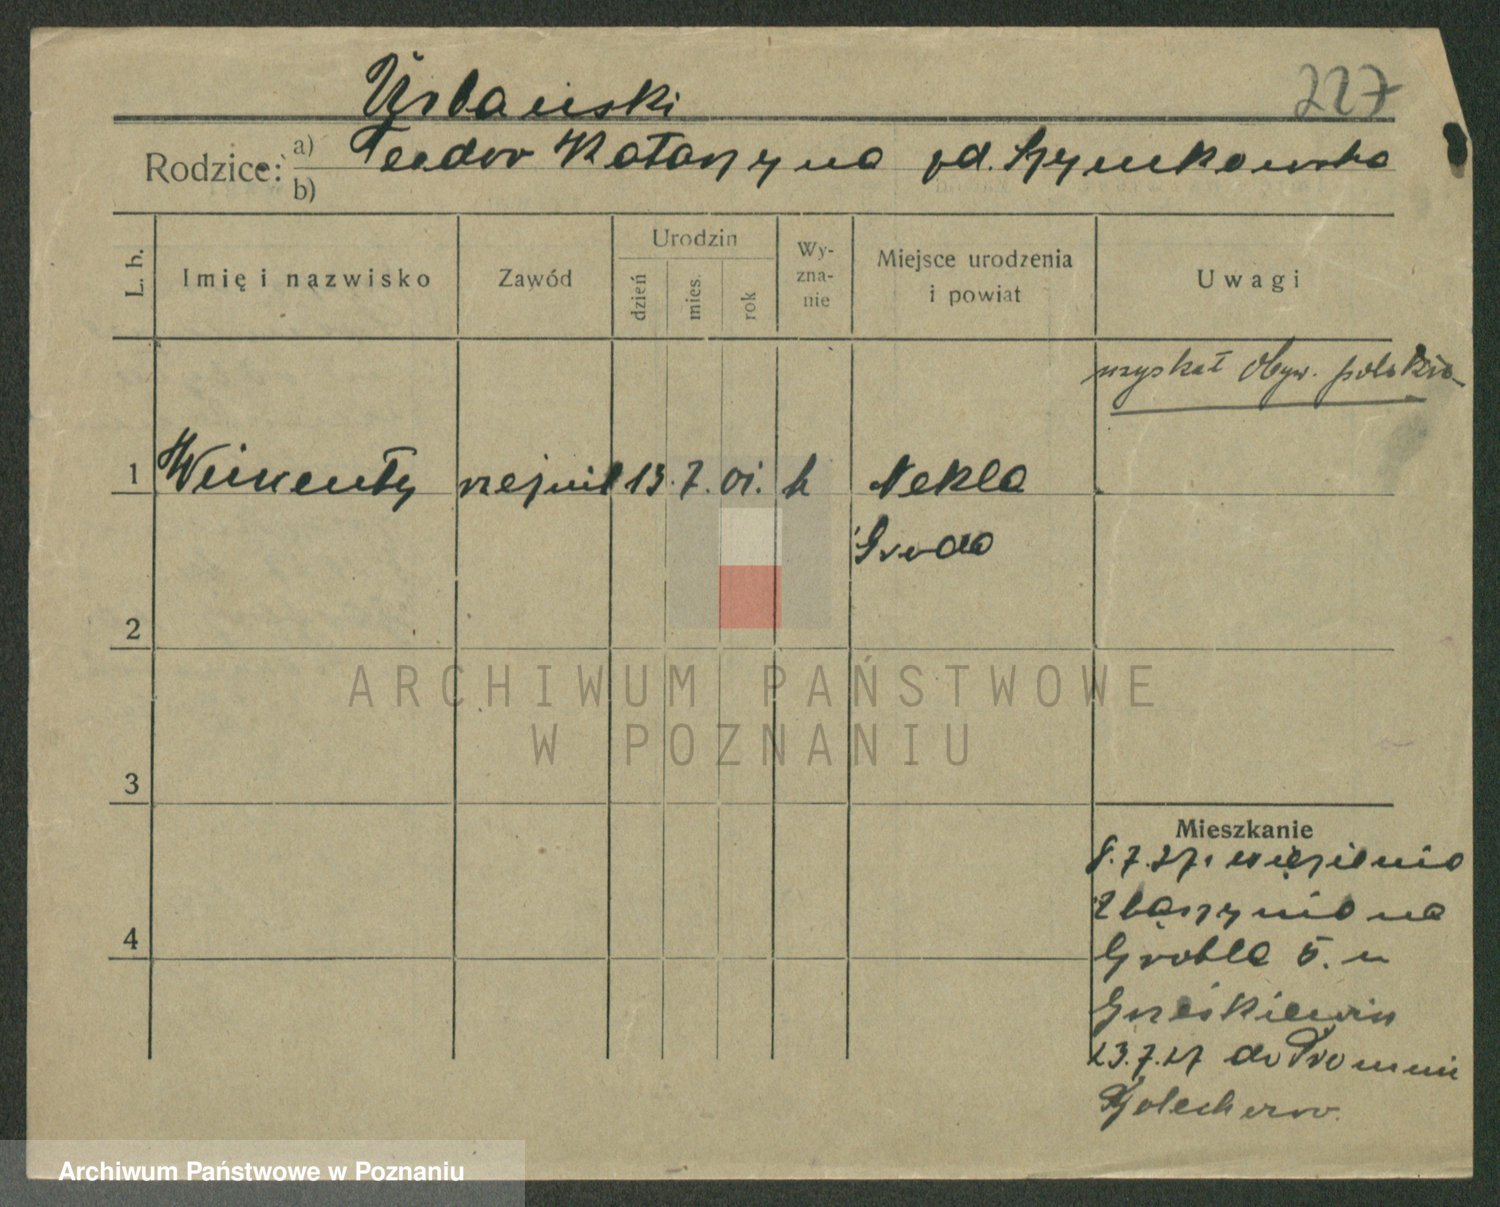 227
Urbański
Rodzice: a) Teodor Katarzyna zd. Szymkowska
b)
L. b.
Imię i nazwisko
Zawód
Urodzin
dzień
mies.
rok
Wy-
zna-
nie
Miejsce urodzenia
i powiat
Uwagi
uzyskał obyw. polskie
1 Wincenty rzeźnik 13. 7. 01. k Nekla
Środa
2
3
4
Mieszkanie
8.7.27. więzienia
na
Grobla 5. u
13.7.27 do
ARCHIWUM PAŃSTWOWE
W POZNANIU
Archiwum Państwowe w Poznaniu